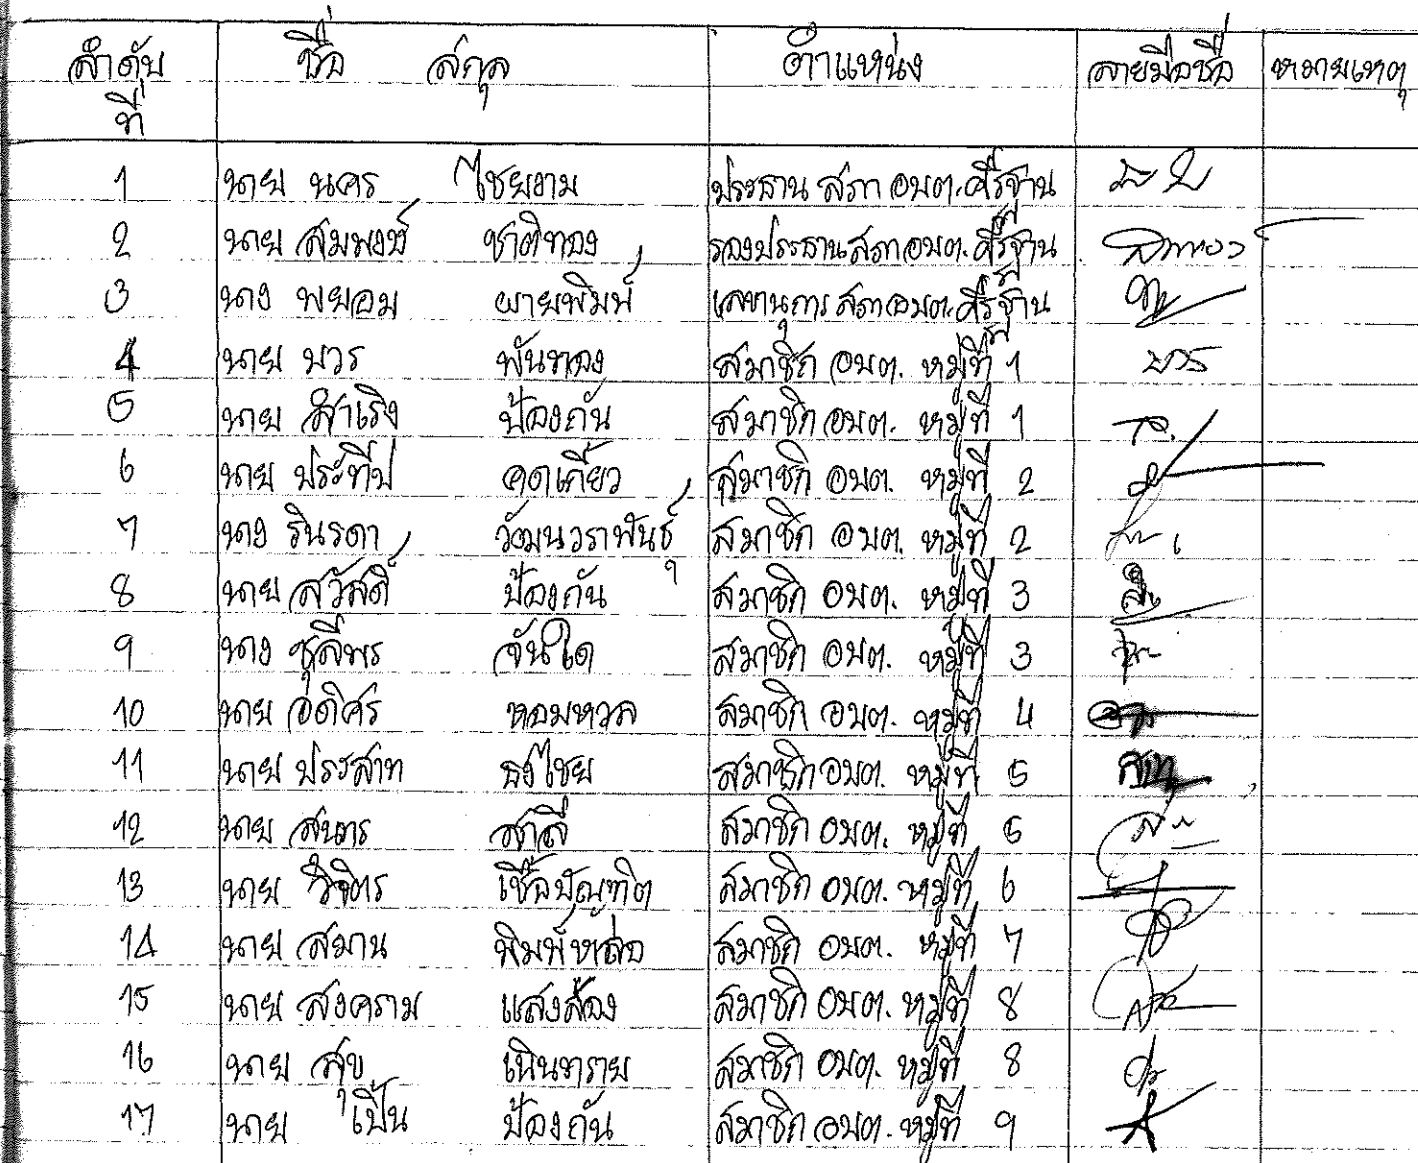 ลำดับ ชื่อ สกุล ตำแหน่ง ลายมือชื่อ หมายเหตุ
ที่
1 นาย นคร ไชยงาม ประธาน สภา อบต. ศรีฐาน
2 นาย สมพงษ์ ชาติทอง รองประธานสภา อบต. ศรีฐาน
3 นาง พยอม ผายพิมพ์ เลขานุการ สภา อบต. ศรีฐาน
4 นาย บวร พันทอง สมาชิก อบต. หมู่ที่ 1 บวร
5 นาย สำเริง ป้องกัน สมาชิก อบต. หมู่ที่ 1
6 นาย ประทีป คดเกี้ยว สมาชิก อบต. หมู่ที่ 2
7 นาง รินรดา วัฒนวราพันธุ์ สมาชิก อบต. หมู่ที่ 2
8 นาย สวัสดิ์ ป้องกัน สมาชิก อบต. หมู่ที่ 3
9 นาง ชุลีพร จันใด สมาชิก อบต. หมู่ที่ 3
10 นาย อดิศร หอมหวล สมาชิก อบต. หมู่ที่ 4
11 นาย ประสาท ธงไชย สมาชิก อบต. หมู่ที่ 5
12 นาย สุนทร สาลี สมาชิก อบต. หมู่ที่ 5
13 นาย วิจิตร เชื้อบัณฑิต สมาชิก อบต. หมู่ที่ 6
14 นาย สมาน พิมพ์หล่อ สมาชิก อบต. หมู่ที่ 7
15 นาย สงคราม แสงส่อง สมาชิก อบต. หมู่ที่ 8
16 นาย สุข เนินทราย สมาชิก อบต. หมู่ที่ 8
17 นาย เป็น ป้องกัน สมาชิก อบต. หมู่ที่ 9